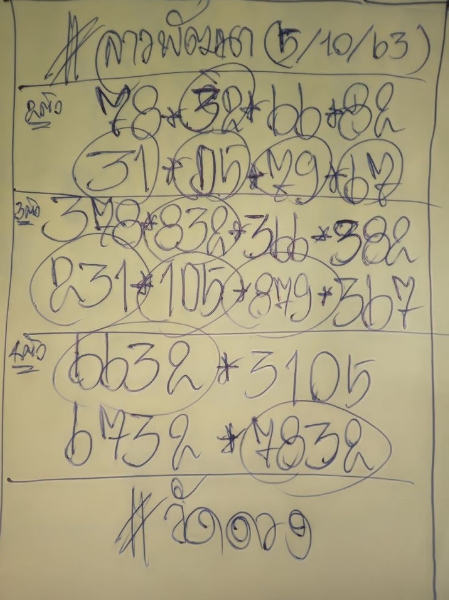 #ลาวพัฒนา (5/10/63)
2ตัว 78*32*66*82
31*05*79*67
3ตัว 378*832*366*382
231*105*879*367
4ตัว 6632*3105
6732*7832
#วัดดวง